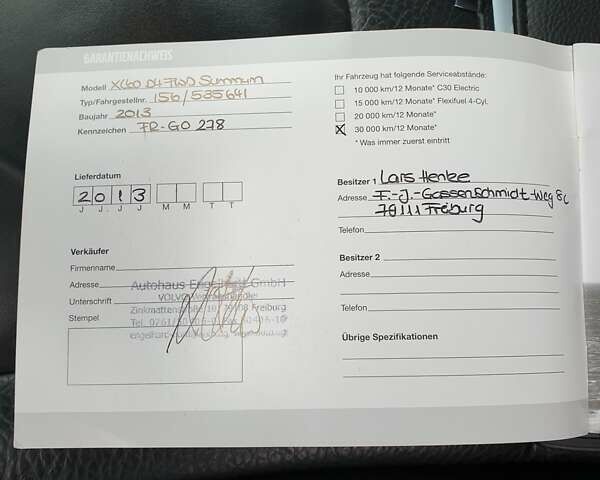 GARANTIENACHWEIS
Modell XC60 D4 FWD Summum
Typ/Fahrgestellnr. 156/535641
Baujahr 2013
Kennzeichen FR-GO 278
Lieferdatum
2 0 1 3
J J J J M M T T
Verkäufer
Firmenname
Adresse Autohaus GmbH
VOLVO
Unterschrift
Zinkmattenstraße Freiburg
Stempel Tel. 0761/
Ihr Fahrzeug hat folgende Serviceabstände:
10 000 km/12 Monate* C30 Electric
15 000 km/12 Monate* Flexifuel 4-Cyl.
20 000 km/12 Monate*
X 30 000 km/12 Monate*
* Was immer zuerst eintritt
Besitzer 1 Lars Henke
Adresse F.-J.-Gassenschmidt-Weg
79111 Freiburg
Telefon
Besitzer 2
Adresse
Telefon
Übrige Spezifikationen